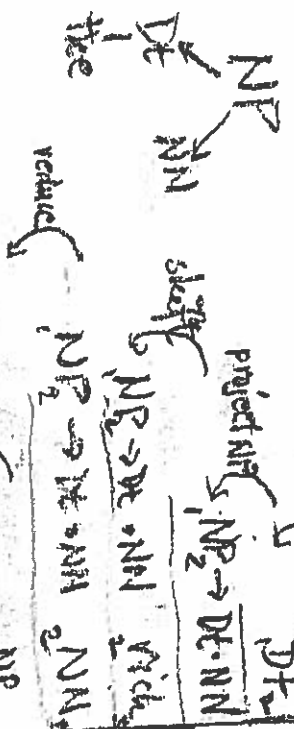 NP
Dt NN
the
Dt 2
project NP
1 NP 2 → Dt • NN
shift
1 NP 2 → Dt • NN 2
reduce
1 NP 2 → Dt • NN 2 NN
NP